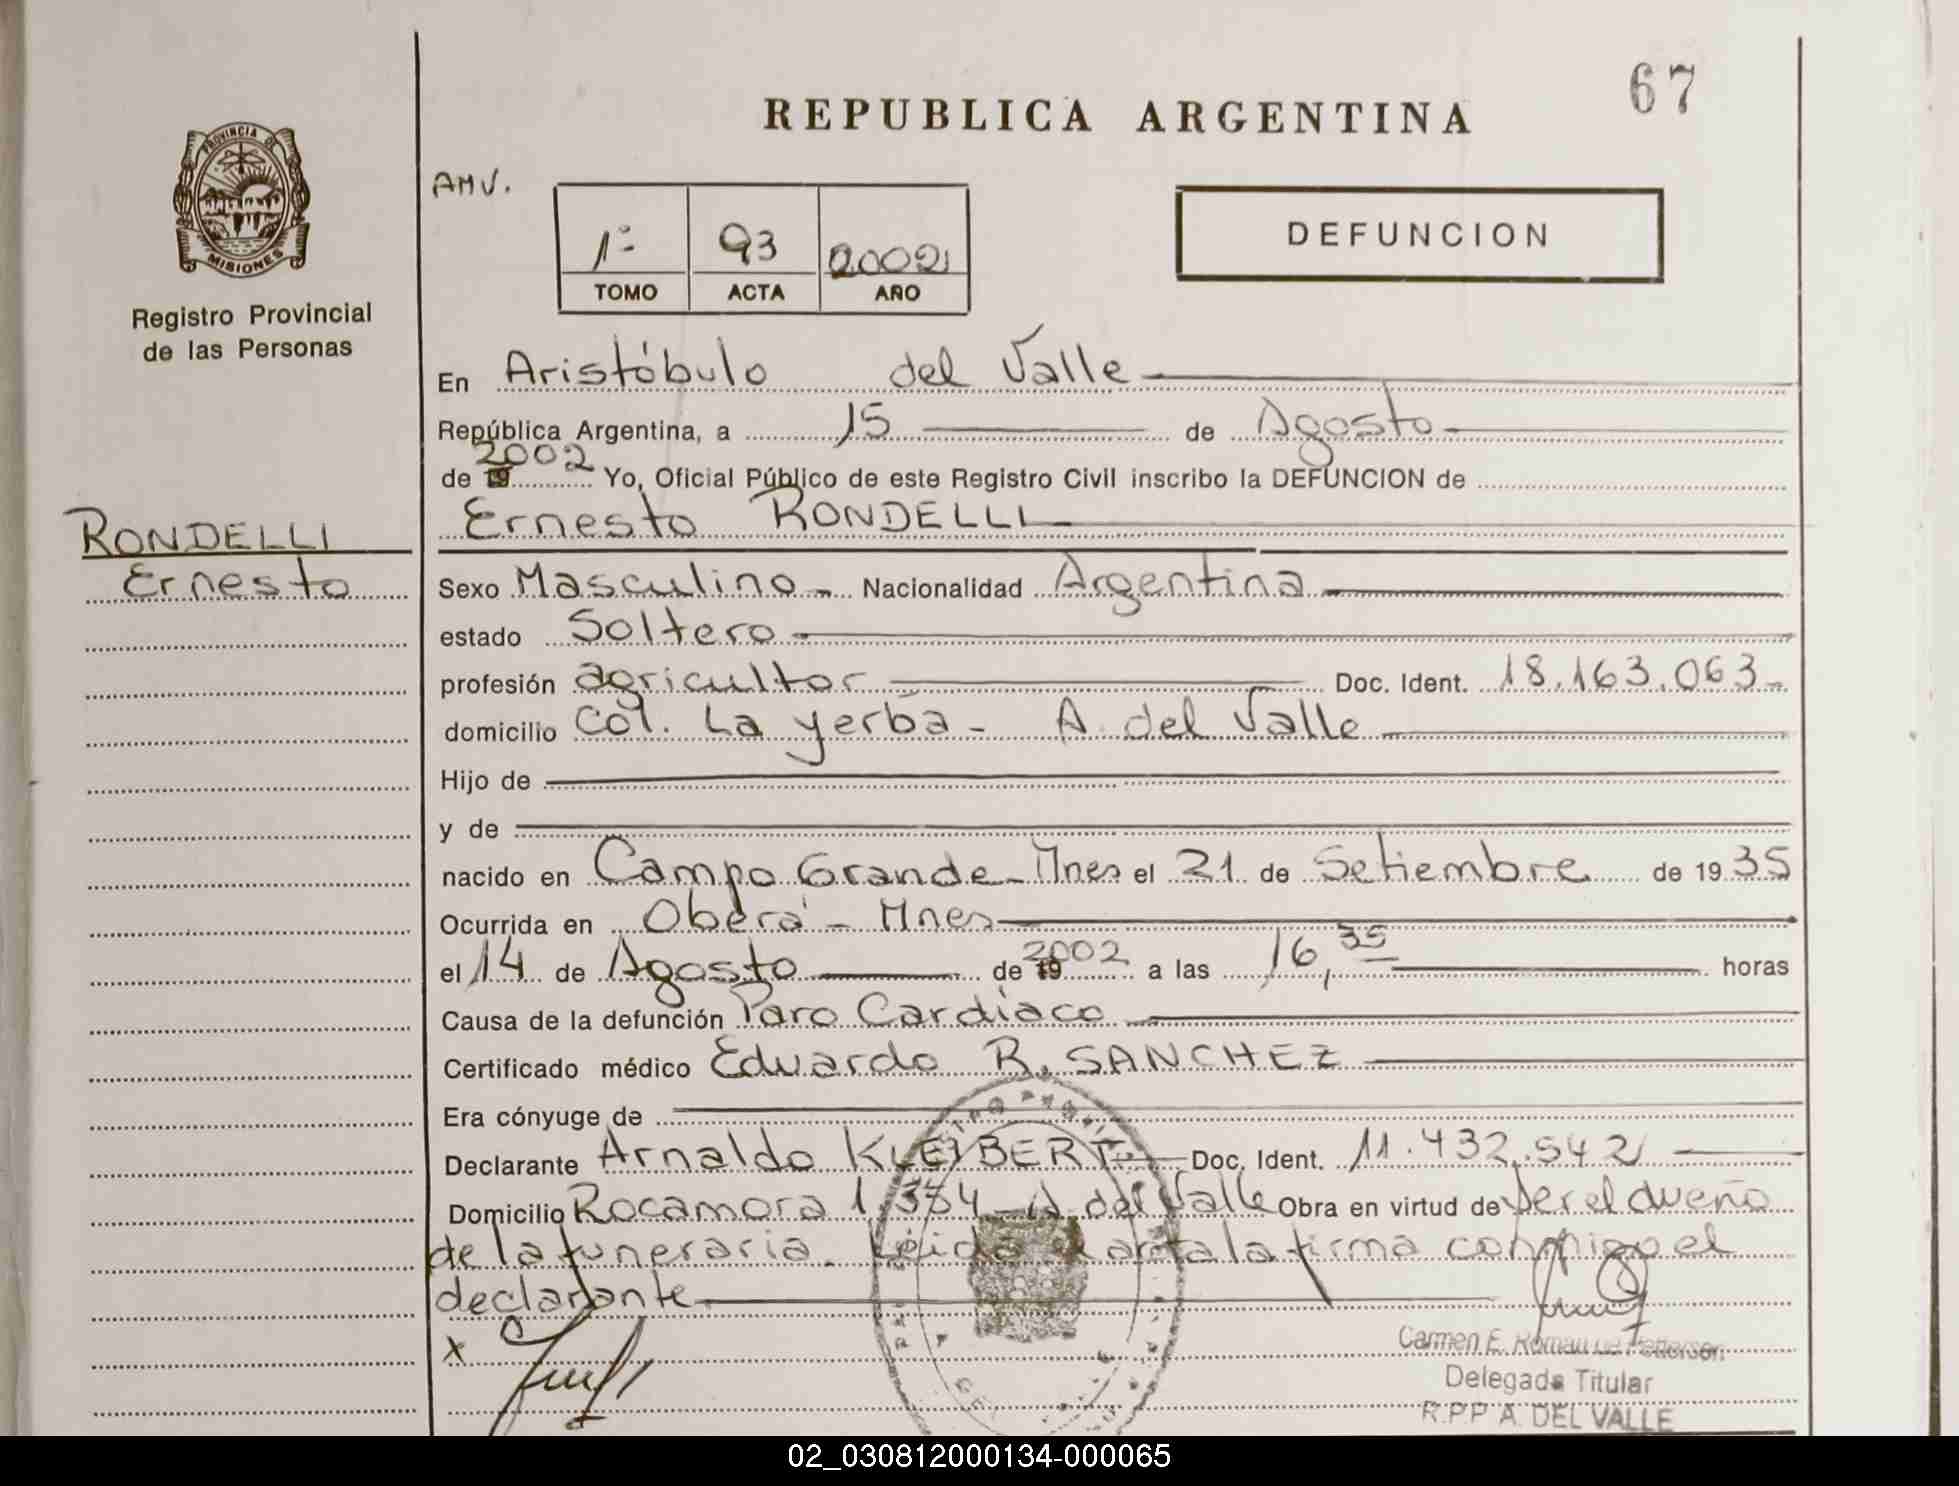 67
REPUBLICA ARGENTINA
PROVINCIA DE
MISIONES
Registro Provincial
de las Personas
AMV.
1º 93 2002
TOMO ACTA AÑO
DEFUNCION
En Aristóbulo del Valle
República Argentina, a 15 de Agosto
de 19 2002 Yo, Oficial Público de este Registro Civil inscribo la DEFUNCION de
Ernesto RONDELLI
RONDELLI
Ernesto
Sexo Masculino Nacionalidad Argentina
estado Soltero
profesión agricultor Doc. Ident. 18.163.063
domicilio Col. La yerba - A. del Valle
Hijo de
y de
nacido en Campo Grande - Mnes el 21 de Setiembre de 1935
Ocurrida en Oberá - Mnes
el 14 de Agosto de 19 2002 a las 16,35 horas
Causa de la defunción Paro Cardíaco
Certificado médico Eduardo R. SANCHEZ
Era cónyuge de
Declarante Arnaldo KLEIBERT Doc. Ident. 11.432.542
Domicilio Rocamora 1354 - A del Valle Obra en virtud de ser el dueño
de la funeraria. Leída el acta la firma conmigo el
declarante
x
Carmen E. Roman de
Delegada Titular
R.P.P A. DEL VALLE
02_030812000134-000065